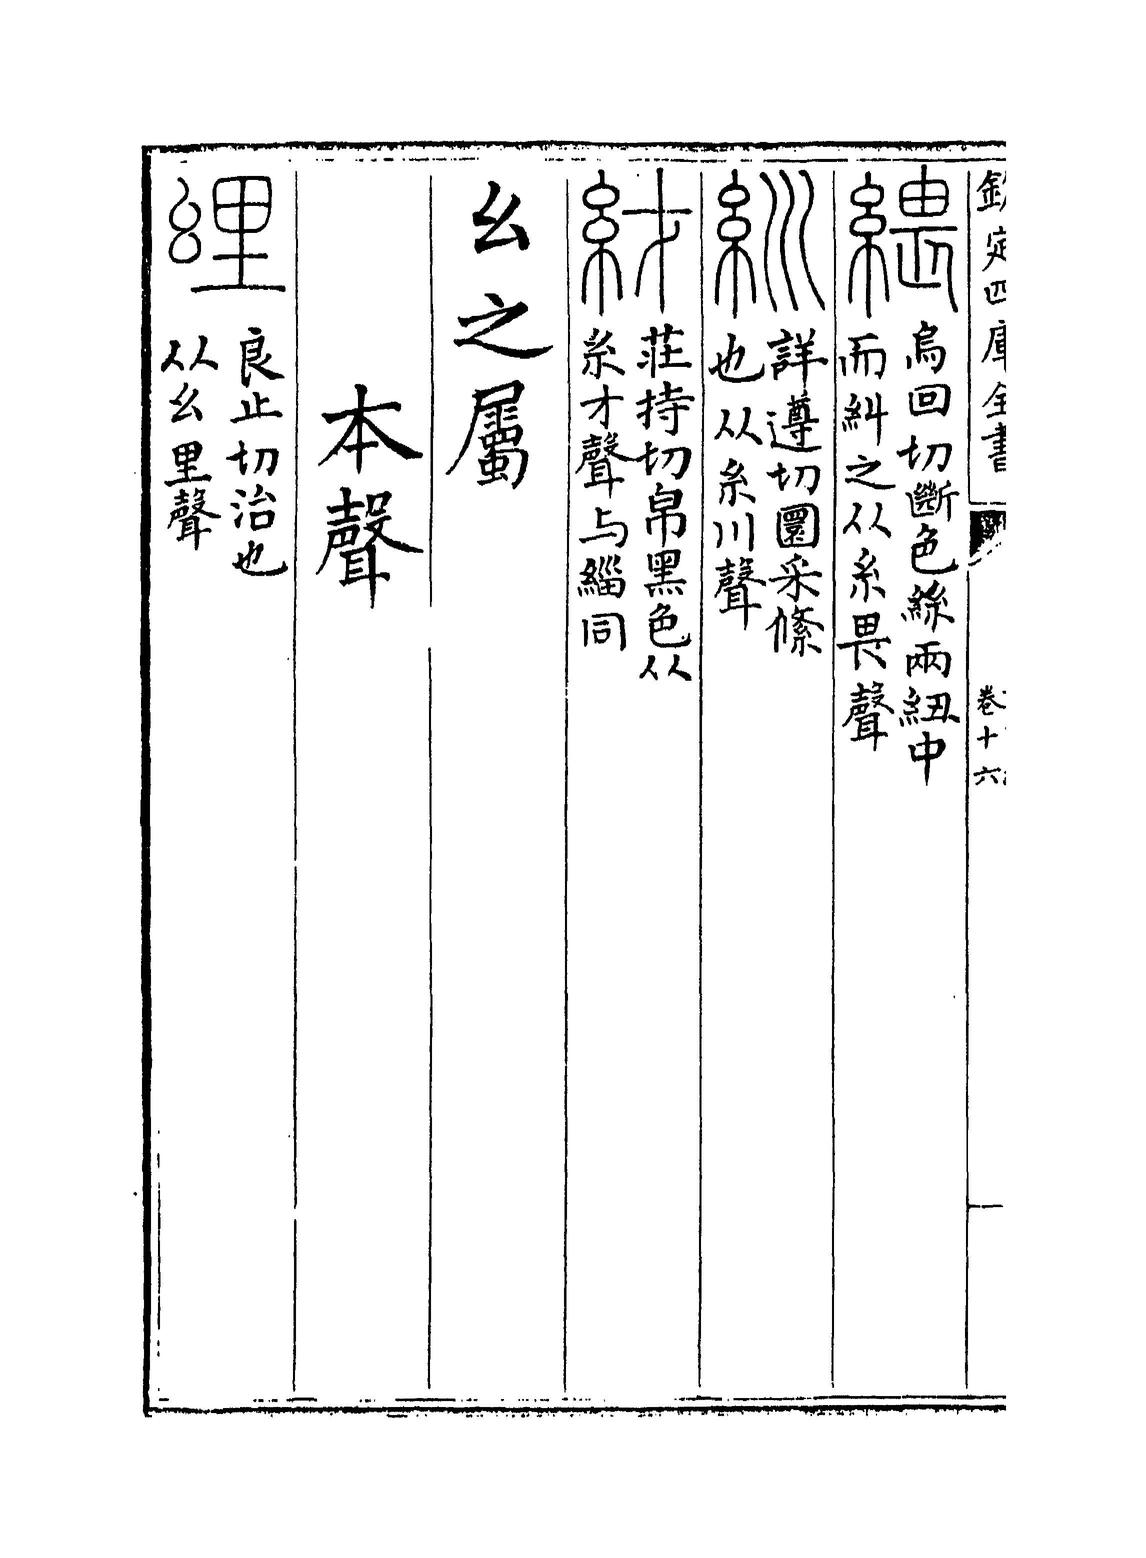 欽定四庫全書 卷十六
烏回切斷色絲兩紐中
而糾之从糸畏聲
紃 詳遵切圜采絛
也从糸川聲
䊷 莊持切帛黑色从
糸才聲与緇同
幺之屬
本聲
良止切治也
从幺里聲